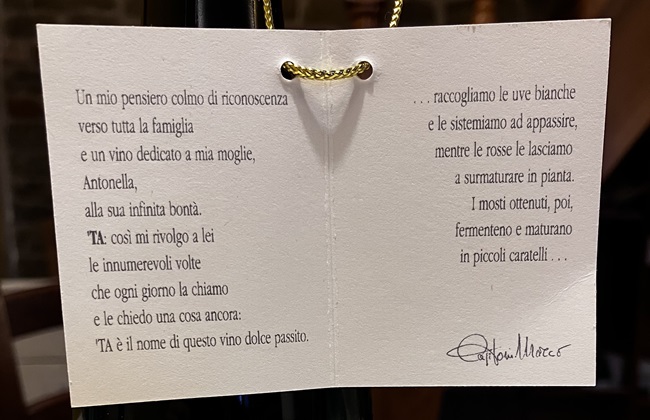 Un mio pensiero colmo di riconoscenza
verso tutta la famiglia
e un vino dedicato a mia moglie,
Antonella,
alla sua infinita bontà.
'TA: così mi rivolgo a lei
le innumerevoli volte
che ogni giorno la chiamo
e le chiedo una cosa ancora:
'TA è il nome di questo vino dolce passito.
. . . raccogliamo le uve bianche
e le sistemiamo ad appassire,
mentre le rosse le lasciamo
a surmaturare in pianta.
I mosti ottenuti, poi,
fermenteno e maturano
in piccoli caratelli . . .